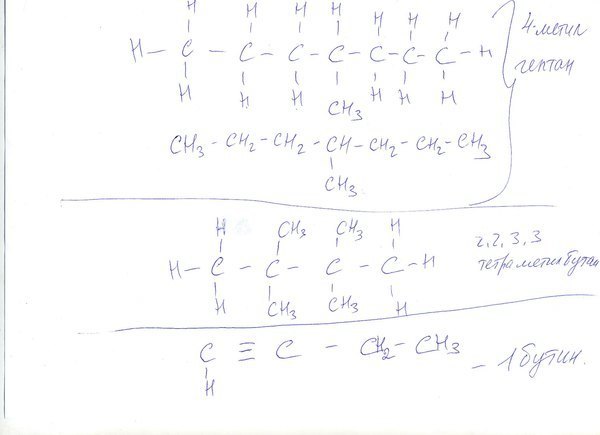 H H H H H H H
H - C - C - C - C - C - C - C - H
H H H CH₃ H H H
4-метил
гептан
CH₃ - CH₂ - CH₂ - CH - CH₂ - CH₂ - CH₃
CH₃
H CH₃ CH₃ H
H - C - C - C - C - H
H CH₃ CH₃ H
2,2,3,3
тетраметилбутан
C ≡ C - CH₂ - CH₃ - 1 бутин.
H